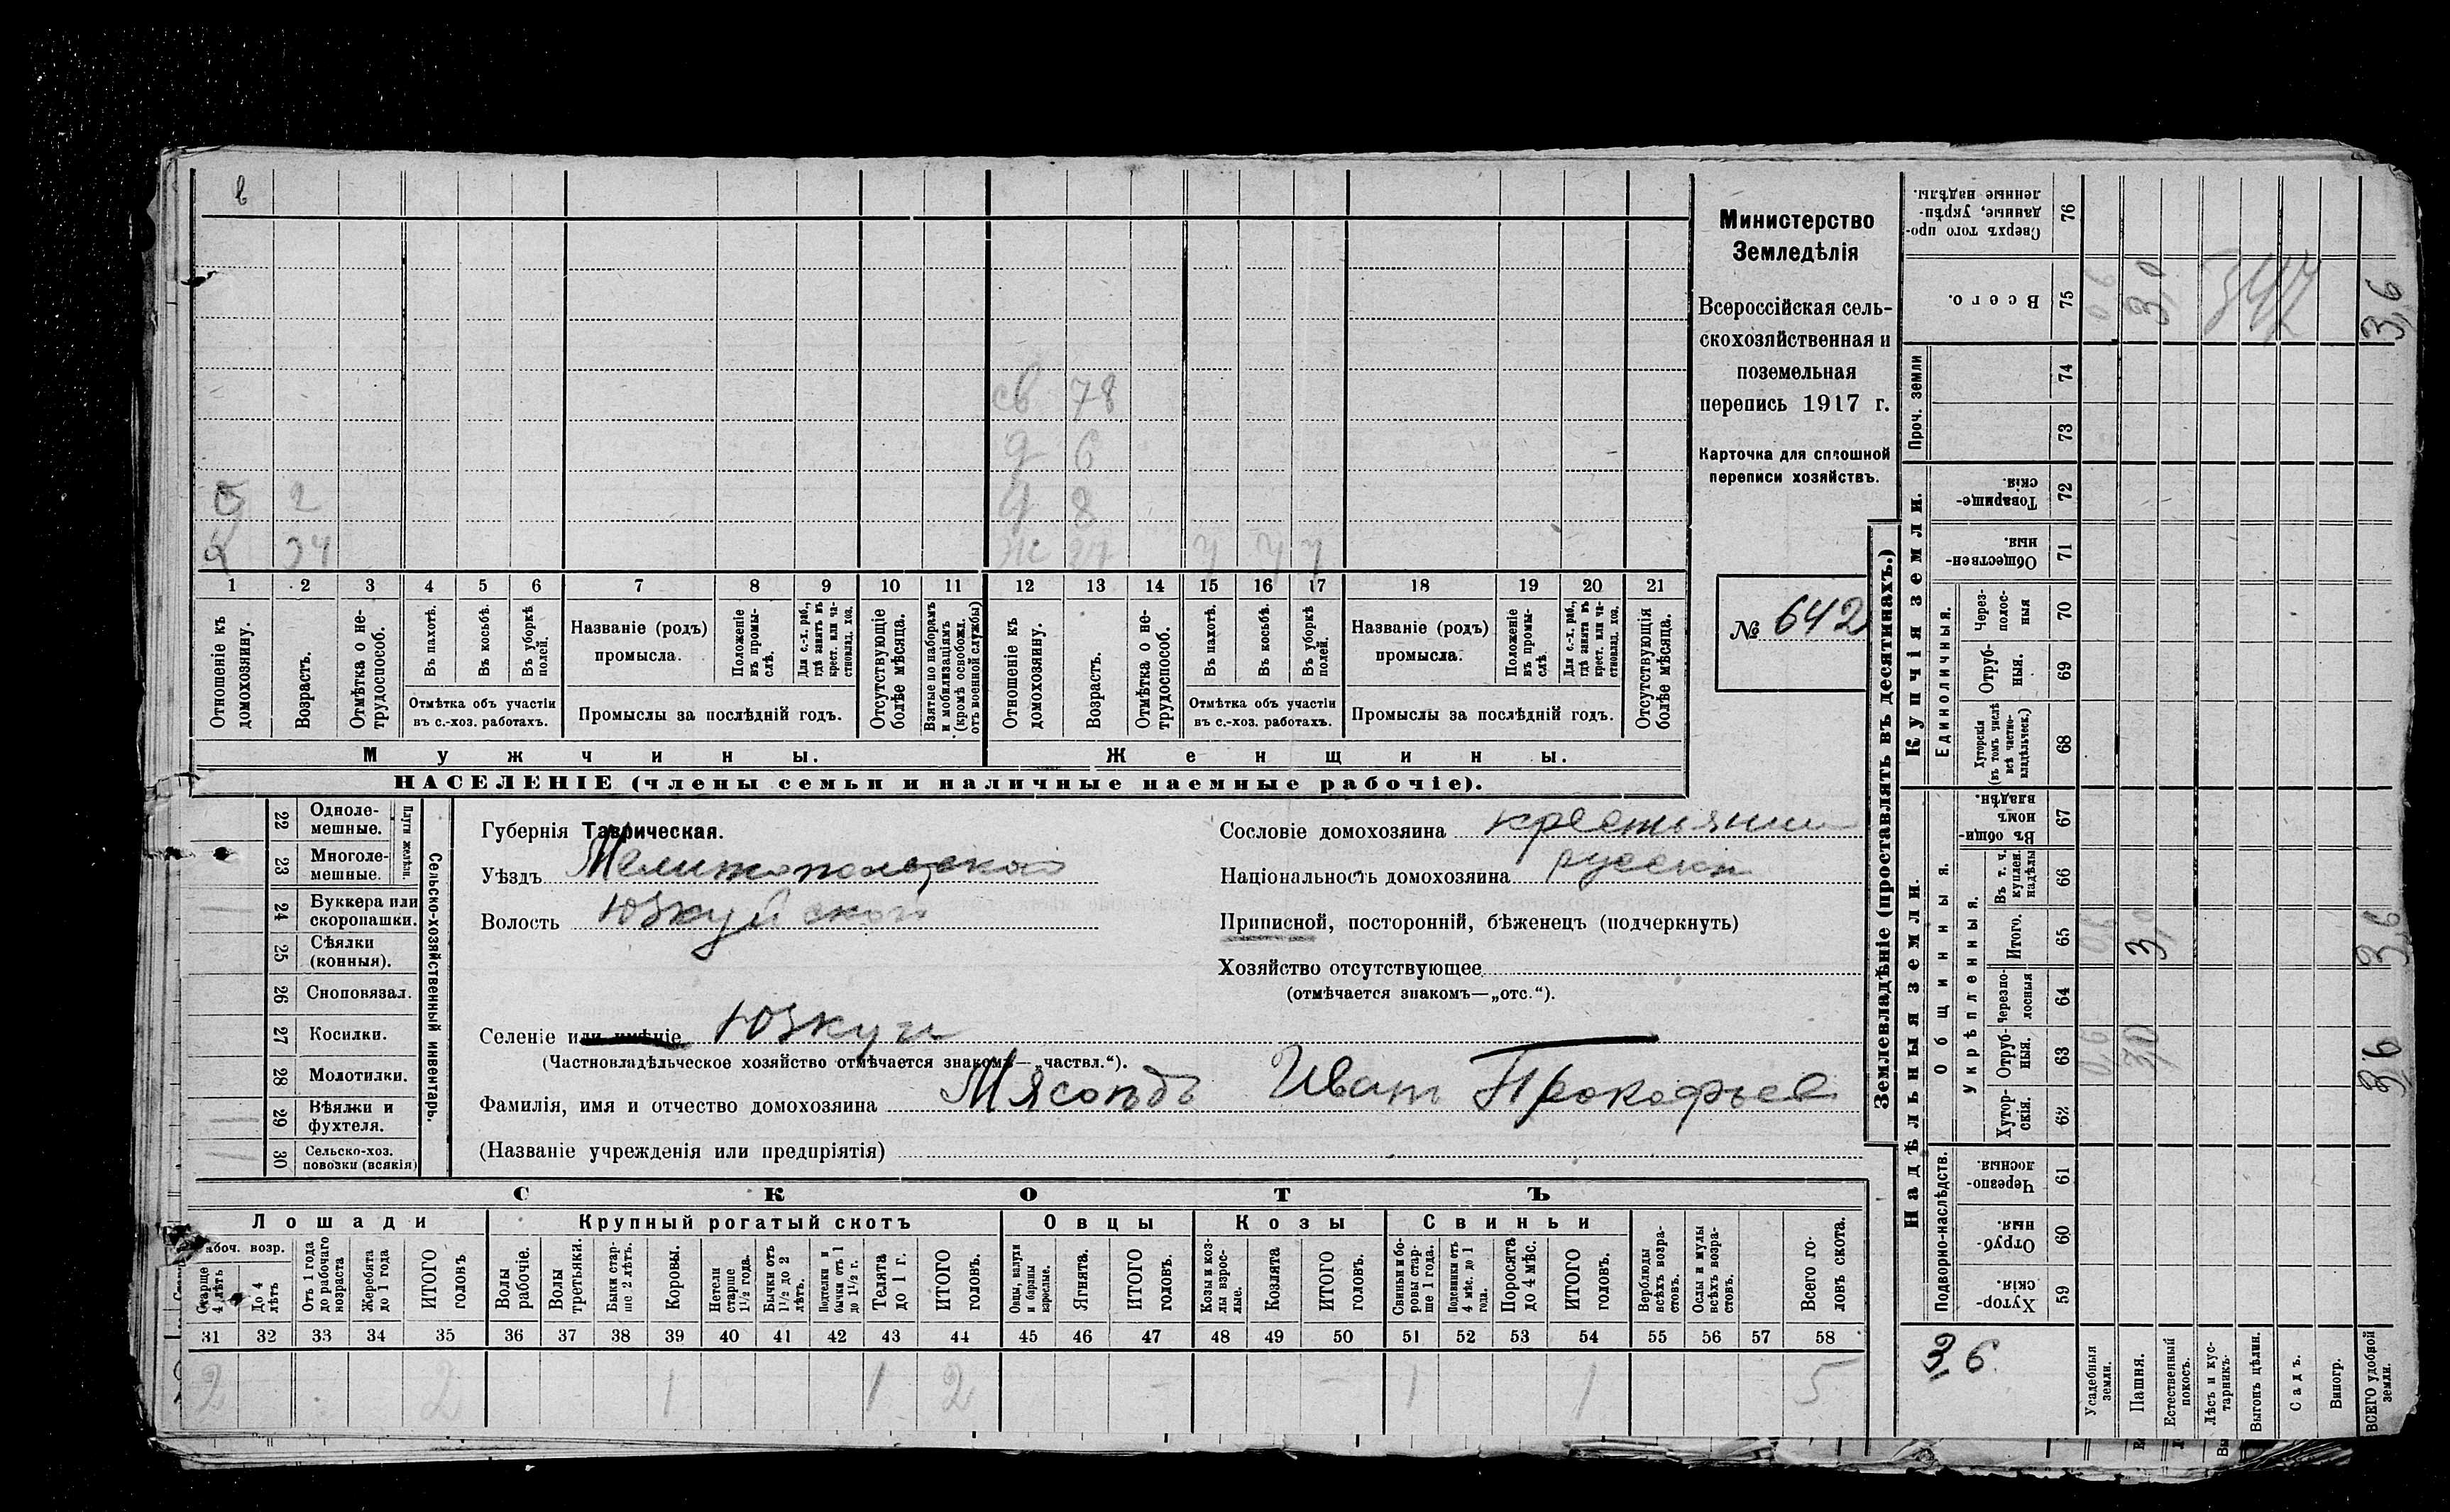 в
св 78
д 6
с 2
д 8
х 34
ж 27
ч ч ч
1 2 3 4 5 6 7 8 9 10 11 12 13 14 15 16 17 18 19 20 21
Отношеніе къ домохозяину.
Возрастъ.
Отмѣтка о нетрудоспособ.
Въ пахотѣ.
Въ косьбѣ.
Въ уборкѣ полей.
Отмѣтка объ участіи въ с.-хоз. работахъ.
Названіе (родъ) промысла.
Положеніе въ промыслѣ.
Для с.-х. раб., гдѣ занятъ въ крест. или частновлад. хоз.
Промыслы за послѣдній годъ.
Отсутствующіе болѣе мѣсяца.
Взятые по наборамъ и мобилизаціямъ (кромѣ освобожд. отъ военной службы)
Отношеніе къ домохозяину.
Возрастъ.
Отмѣтка о нетрудоспособ.
Въ пахотѣ.
Въ косьбѣ.
Въ уборкѣ полей.
Отмѣтка объ участіи въ с.-хоз. работахъ.
Названіе (родъ) промысла.
Положеніе въ промыслѣ.
Для с.-х. раб., гдѣ занята въ крест. или частновлад. хоз.
Промыслы за послѣдній годъ.
Отсутствующія болѣе мѣсяца.
Мужчины.
Женщины.
НАСЕЛЕНІЕ (члены семьи и наличные наемные рабочіе).
Министерство
Земледѣлія
Всероссійская сель-
скохозяйственная и
поземельная
перепись 1917 г.
Карточка для сплошной
переписи хозяйствъ.
№ 642
22 Одноле-
мешные.
23 Многоле-
мешные.
Плуги желѣзн.
24 Буккера или
скоропашки.
25 Сѣялки
(конныя).
26 Сноповязал.
27 Косилки.
28 Молотилки.
29 Вѣялки и
фухтеля.
30 Сельско-хоз.
повозки (всякія)
Сельско-хозяйственный инвентарь.
Губернія Таврическая.
Уѣздъ Мелитопольской
Волость Юзкуйской
Селеніе или имѣніе Юзкуи
(Частновладѣльческое хозяйство отмѣчается знакомъ—„частвл.“).
Фамилія, имя и отчество домохозяина Мясоѣдъ Иванъ Прокофьев
(Названіе учрежденія или предпріятія)
Сословіе домохозяина крестьянин
Національность домохозяина русскій
Приписной, посторонній, бѣженецъ (подчеркнуть)
Хозяйство отсутствующее
(отмѣчается знакомъ—„отс.“).
СКОТЪ
Лошади
Крупный рогатый скотъ
Овцы
Козы
Свиньи
Рабоч. возр.
Старше 4 лѣтъ
До 4 лѣтъ
Отъ 1 года до рабочаго возраста
Жеребята до 1 года
ИТОГО головъ
Волы рабочіе.
Волы третьяки.
Быки старше 2 лѣтъ.
Коровы.
Нетели старше 1½ года.
Бычки отъ 1½ до 2 лѣтъ.
Подтелки и бычки отъ 1 до 1½ г.
Телята до 1 г.
ИТОГО головъ.
Овцы, валухи и бараны взрослые.
Ягнята.
ИТОГО головъ.
Козы и козлы взрослые.
Козлята
ИТОГО головъ.
Свиньи и боровы старше 1 года.
Подсвинки отъ 4 мѣс. до 1 года.
Поросята до 4 мѣс.
ИТОГО головъ.
Верблюды всѣхъ возрастовъ.
Ослы и мулы всѣхъ возрастовъ.
Всего головъ скота.
31 32 33 34 35 36 37 38 39 40 41 42 43 44 45 46 47 48 49 50 51 52 53 54 55 56 57 58
2 2 1 1 2 – – 1 1 5
Землевладѣніе (проставлять въ десятинахъ.)
Надѣльныя земли.
Купчія земли.
Проч. земли
Подворно-наслѣдств.
Общинныя.
Укрѣпленныя.
Единоличныя.
Сверхъ того проданные, укрѣпленные надѣлы. 76
Всего. 75
74
73
Товарищескія. 72
Общественныя. 71
Через-
полос-
ныя 70
Отруб-
ныя. 69
Хуторскія (въ томъ числѣ всѣ частновладѣльческ.) 68
Въ общинномъ владѣн. 67
Въ т. ч. куплен. надѣлы 66
Итого. 65
Черезпо-
лосныя 64
Отруб-
ныя. 63
Хутор-
скія. 62
Черезпо-
лосныя 61
Отруб-
ныя. 60
Хутор-
скія. 59
0,6 3,0 347 3,6
0,6 3,0 3,6
0,6 3,0 3,6
3,6
Усадебныя земли.
Пашня.
Естественный покосъ.
Лѣсъ и кустарникъ.
Выгонъ цѣлин.
Садъ.
Виногр.
ВСЕГО удобной земли.